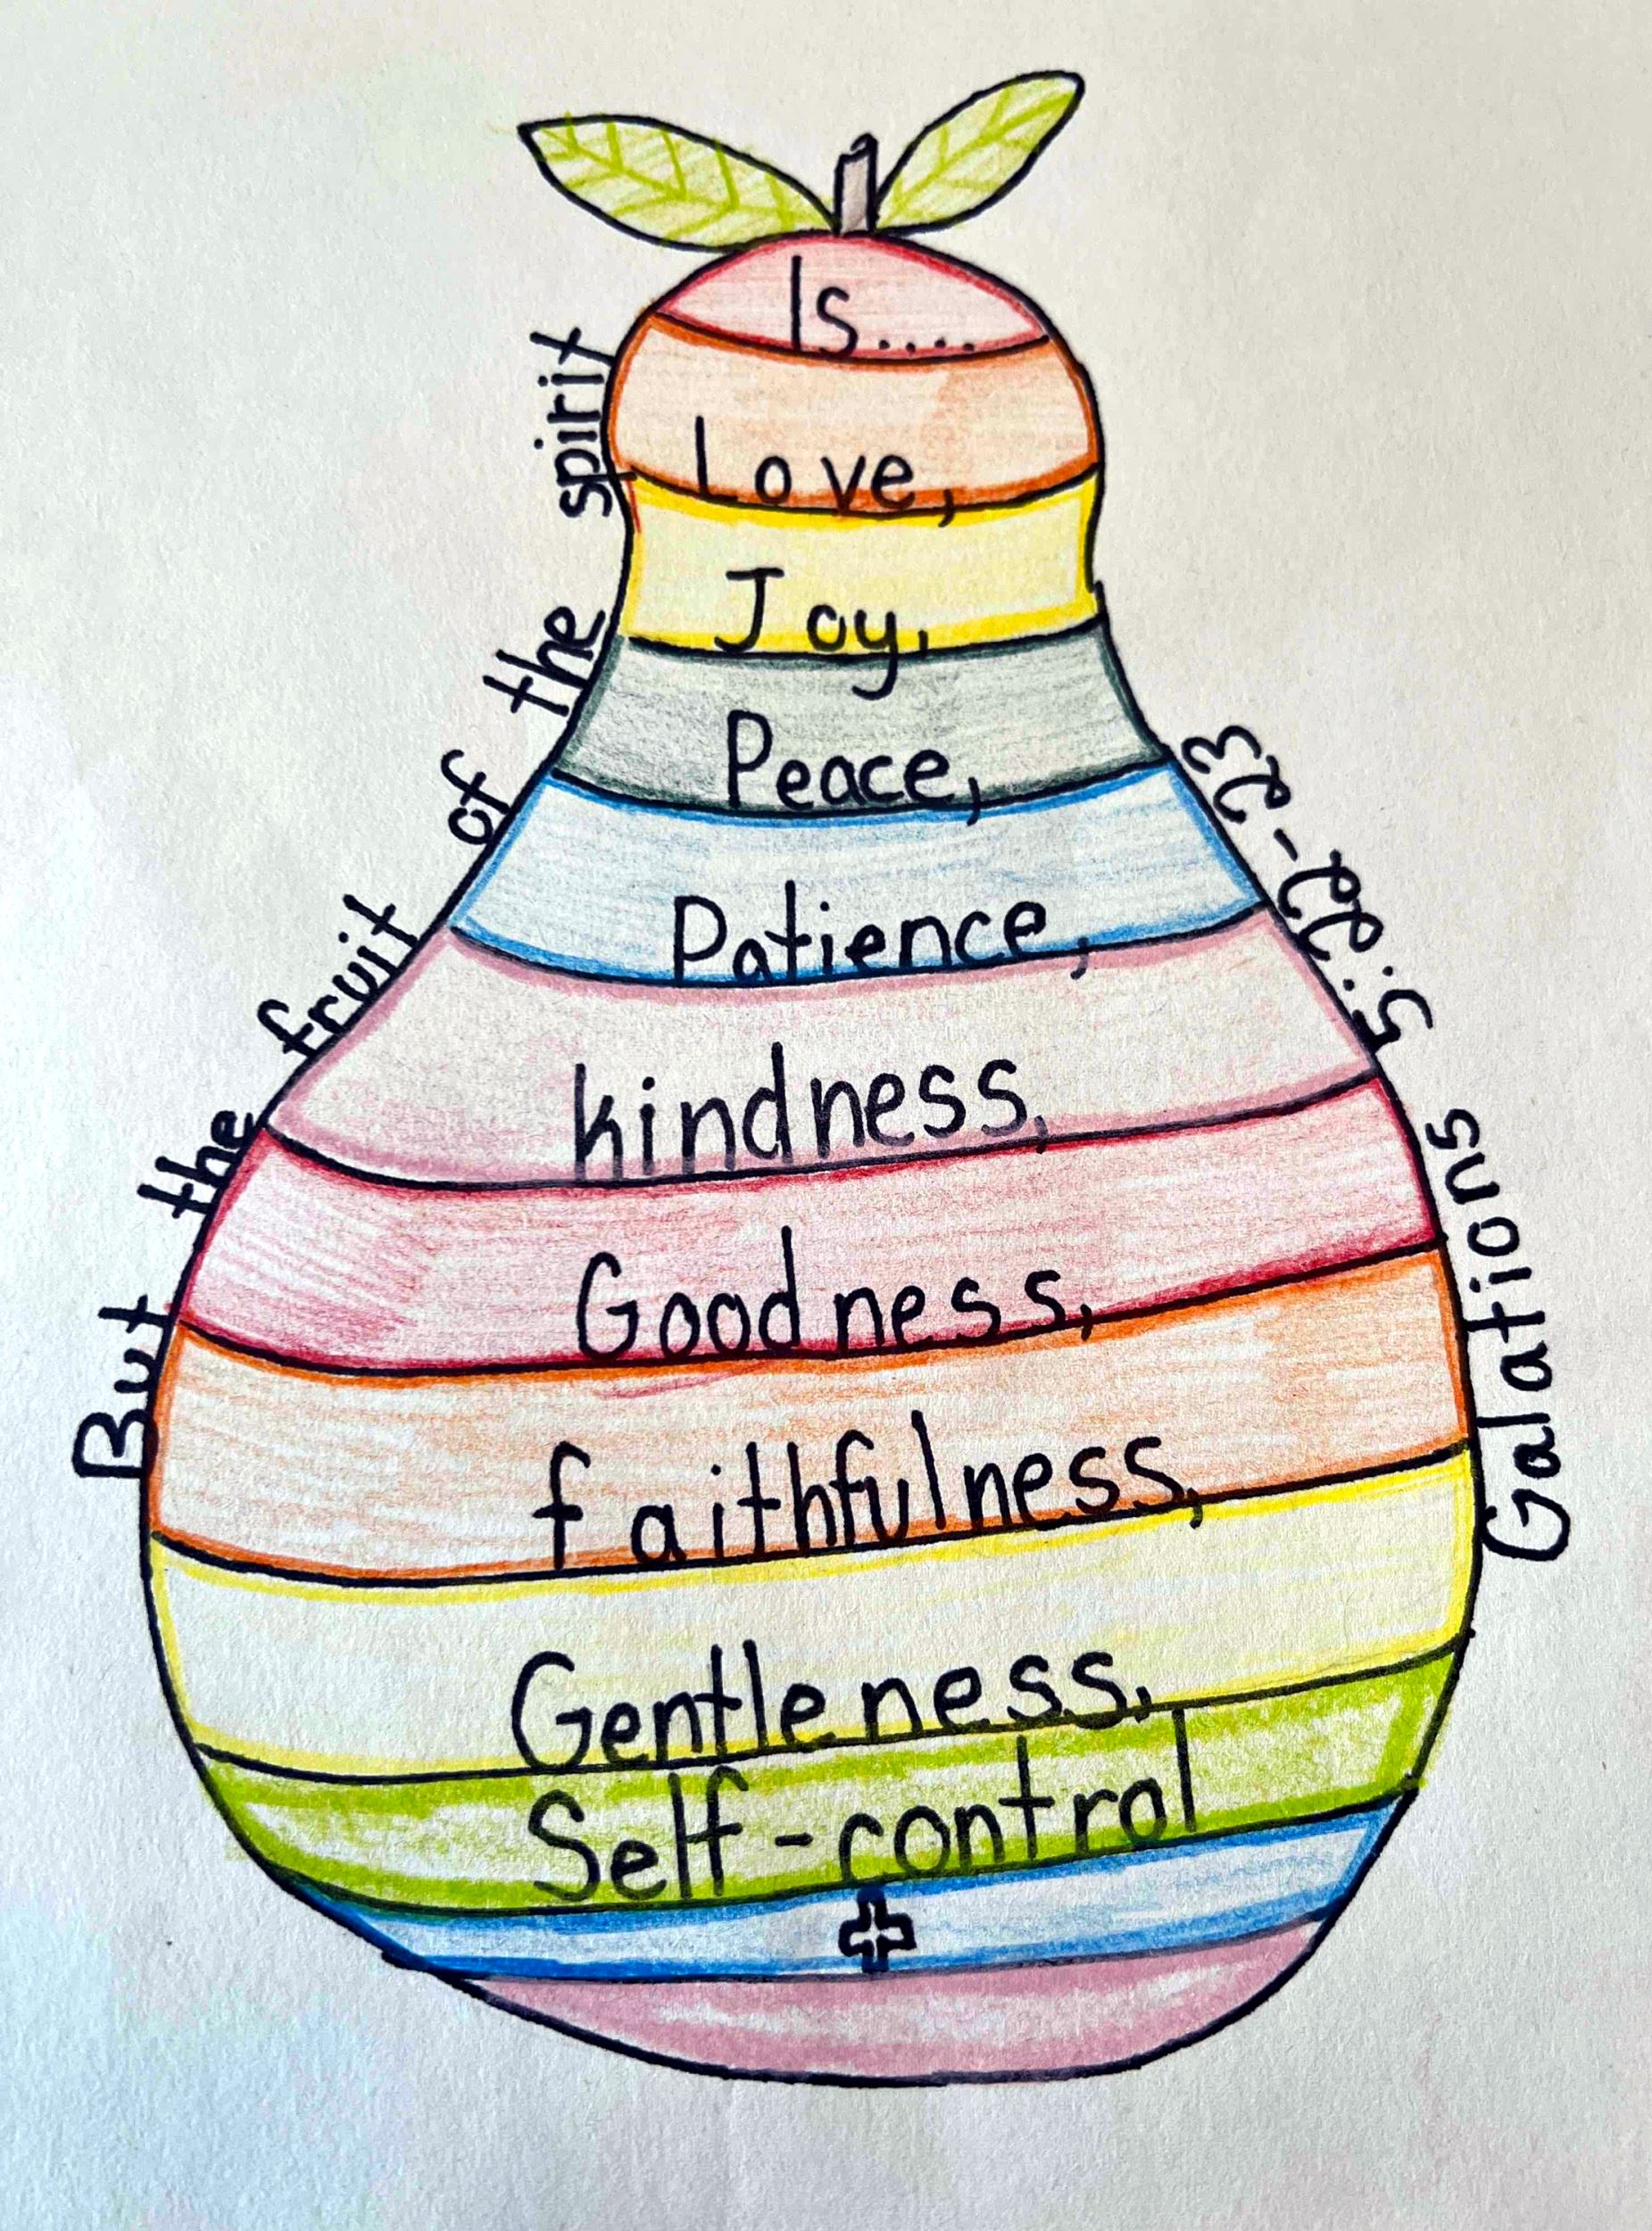 But the fruit of the spirit
Is....
Love,
Joy,
Peace,
Patience,
kindness,
Goodness,
faithfulness,
Gentleness,
Self-control
Galations 5:22-23